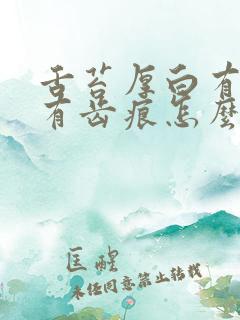 舌苔厚白有
有齿痕怎么
匡醒
未经同意禁止转载